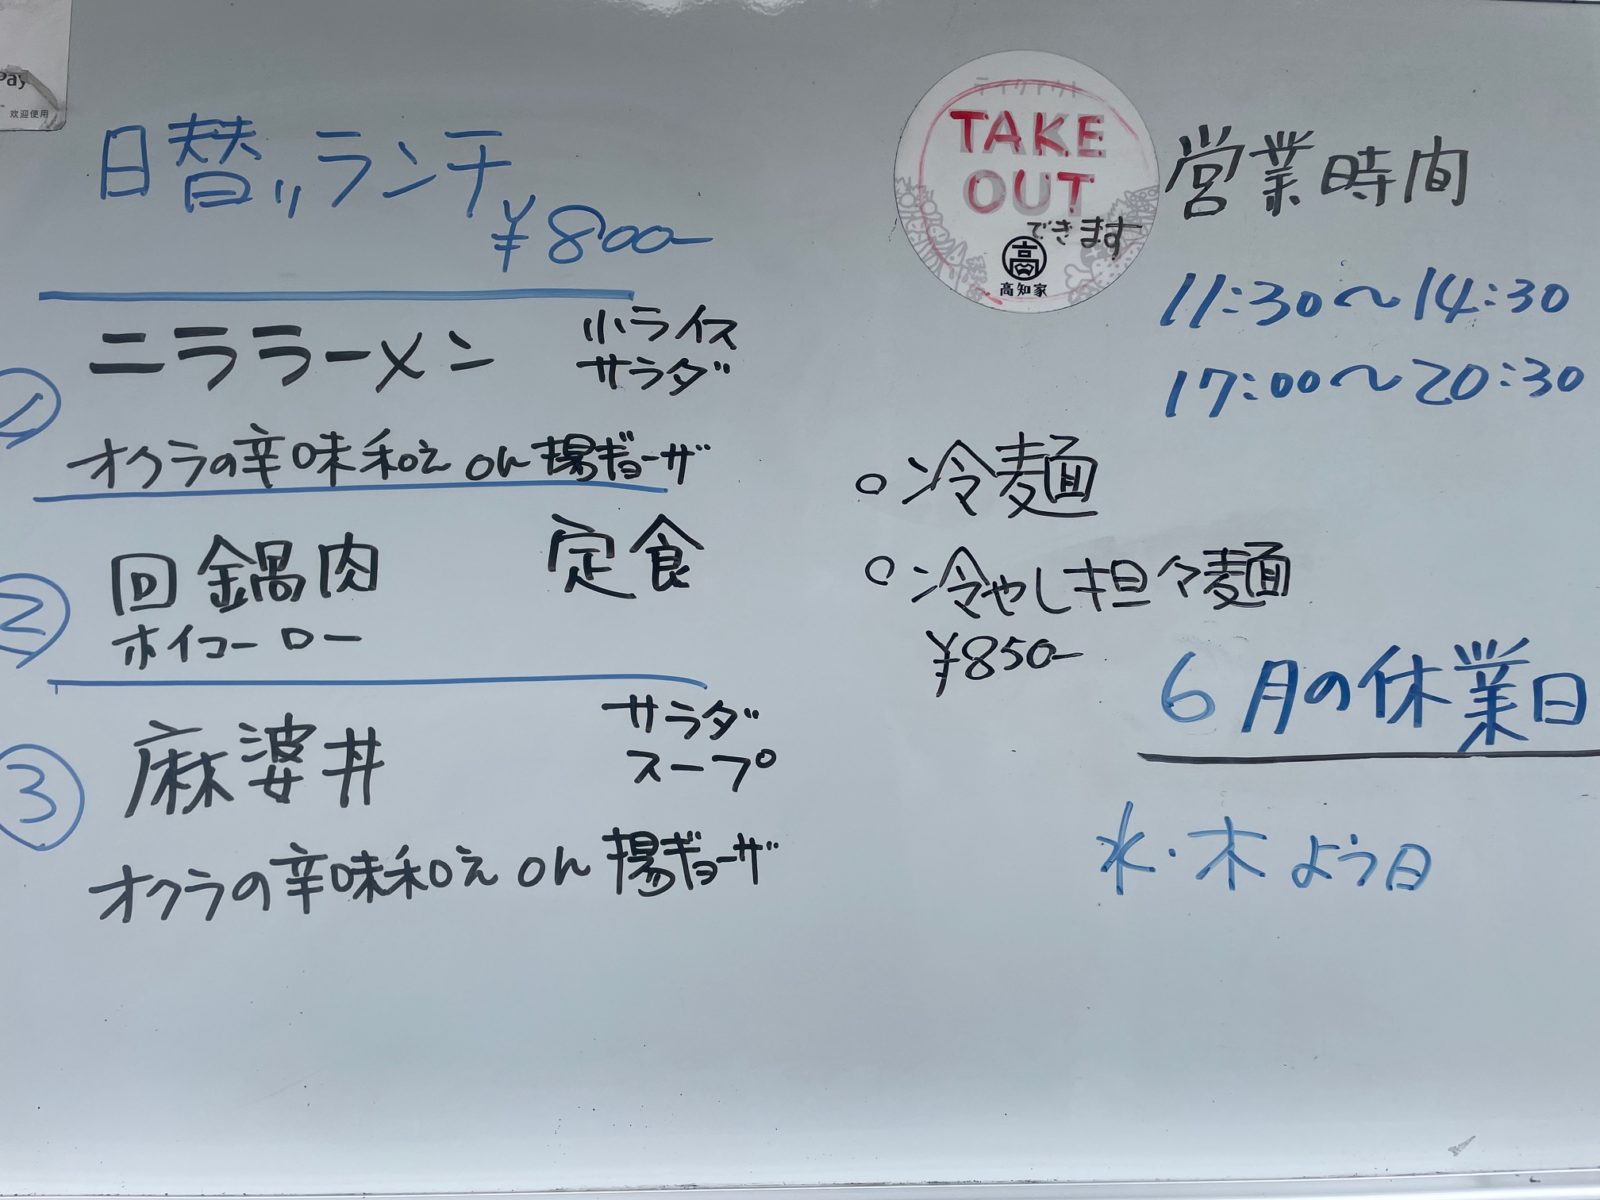 Pay
欢迎使用
日替りランチ
¥800-
① ニララーメン 小ライス
サラダ
オクラの辛味和え on 揚ギョーザ
② 回鍋肉 定食
ホイコーロー
③ 麻婆丼 サラダ
スープ
オクラの辛味和え on 揚ギョーザ
テイクアウト
TAKE
OUT
できます
高
高知家
営業時間
11:30〜14:30
17:00〜20:30
○冷麺
○冷やし担々麺
¥850-
6月の休業日
水・木よう日